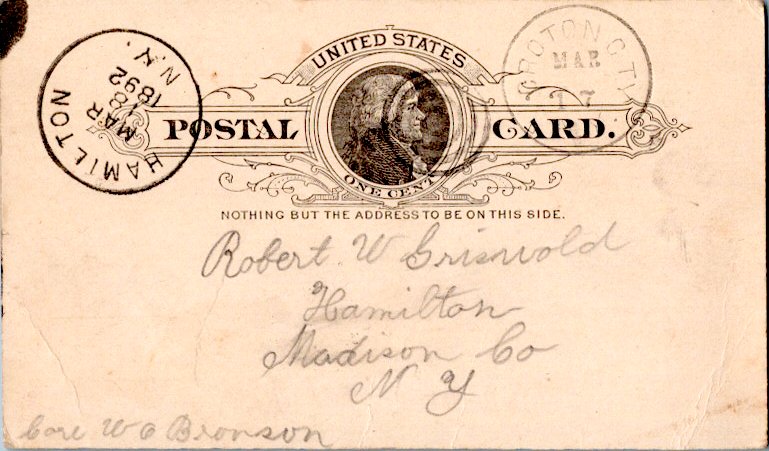 HAMILTON
MAR
18
1892
N.Y.
UNITED STATES
POSTAL CARD.
ONE CENT
CROTON
MAR
17
NOTHING BUT THE ADDRESS TO BE ON THIS SIDE.
Robert W Griswold
Hamilton
Madison Co
N Y
Care W C Bronson